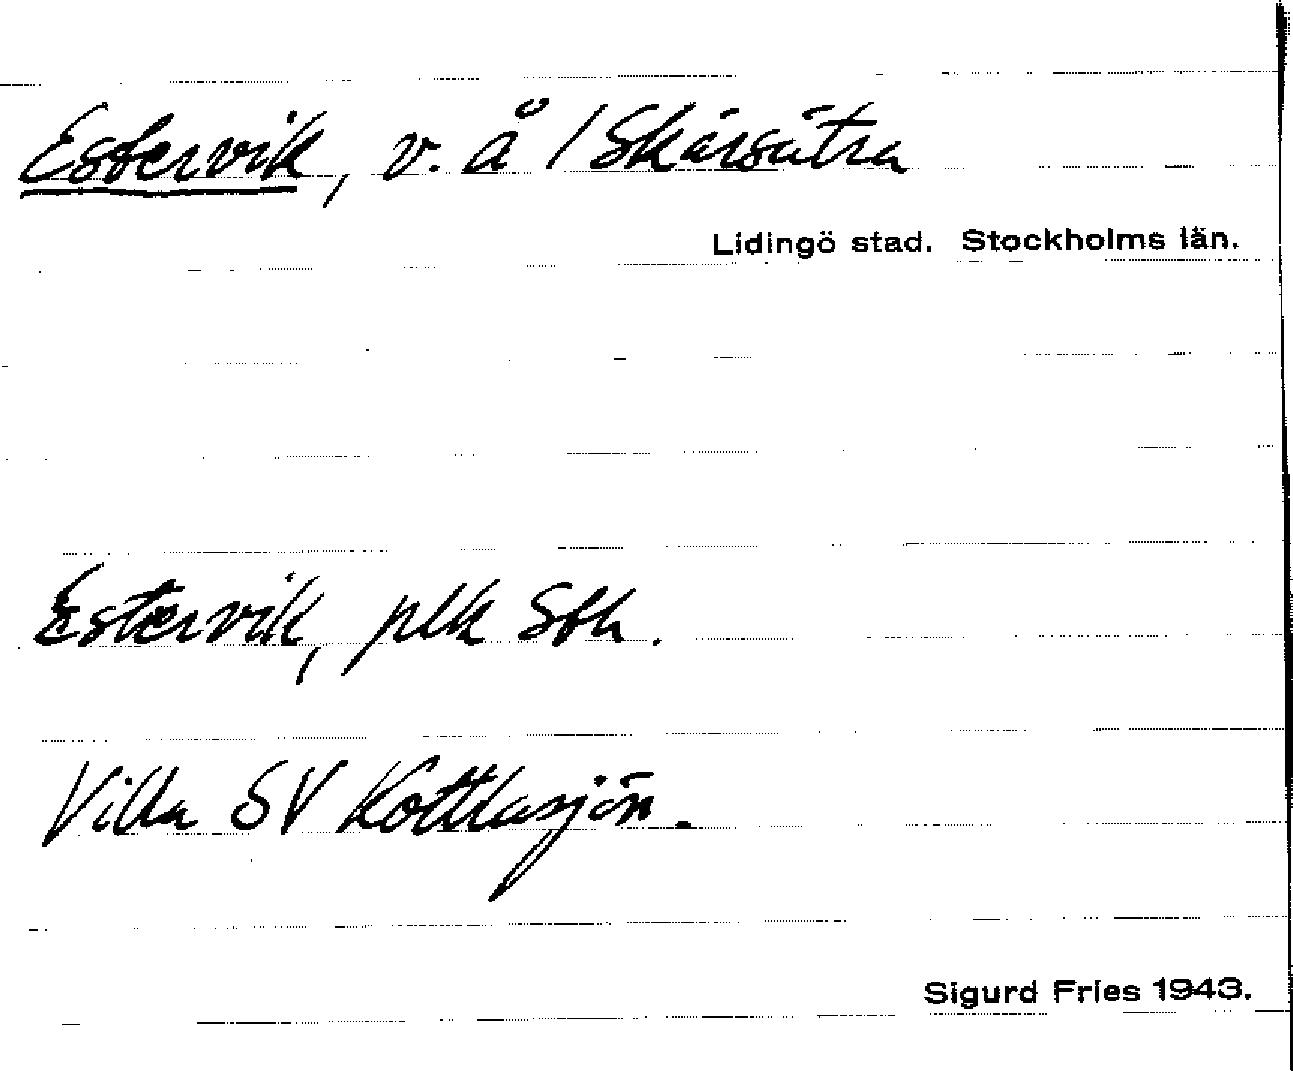 Estervik, v. å /Skärsätra
Lidingö stad. Stockholms län.
Estervik, plk Sth.
Villa SV Kottlasjön.
Sigurd Fries 1943.